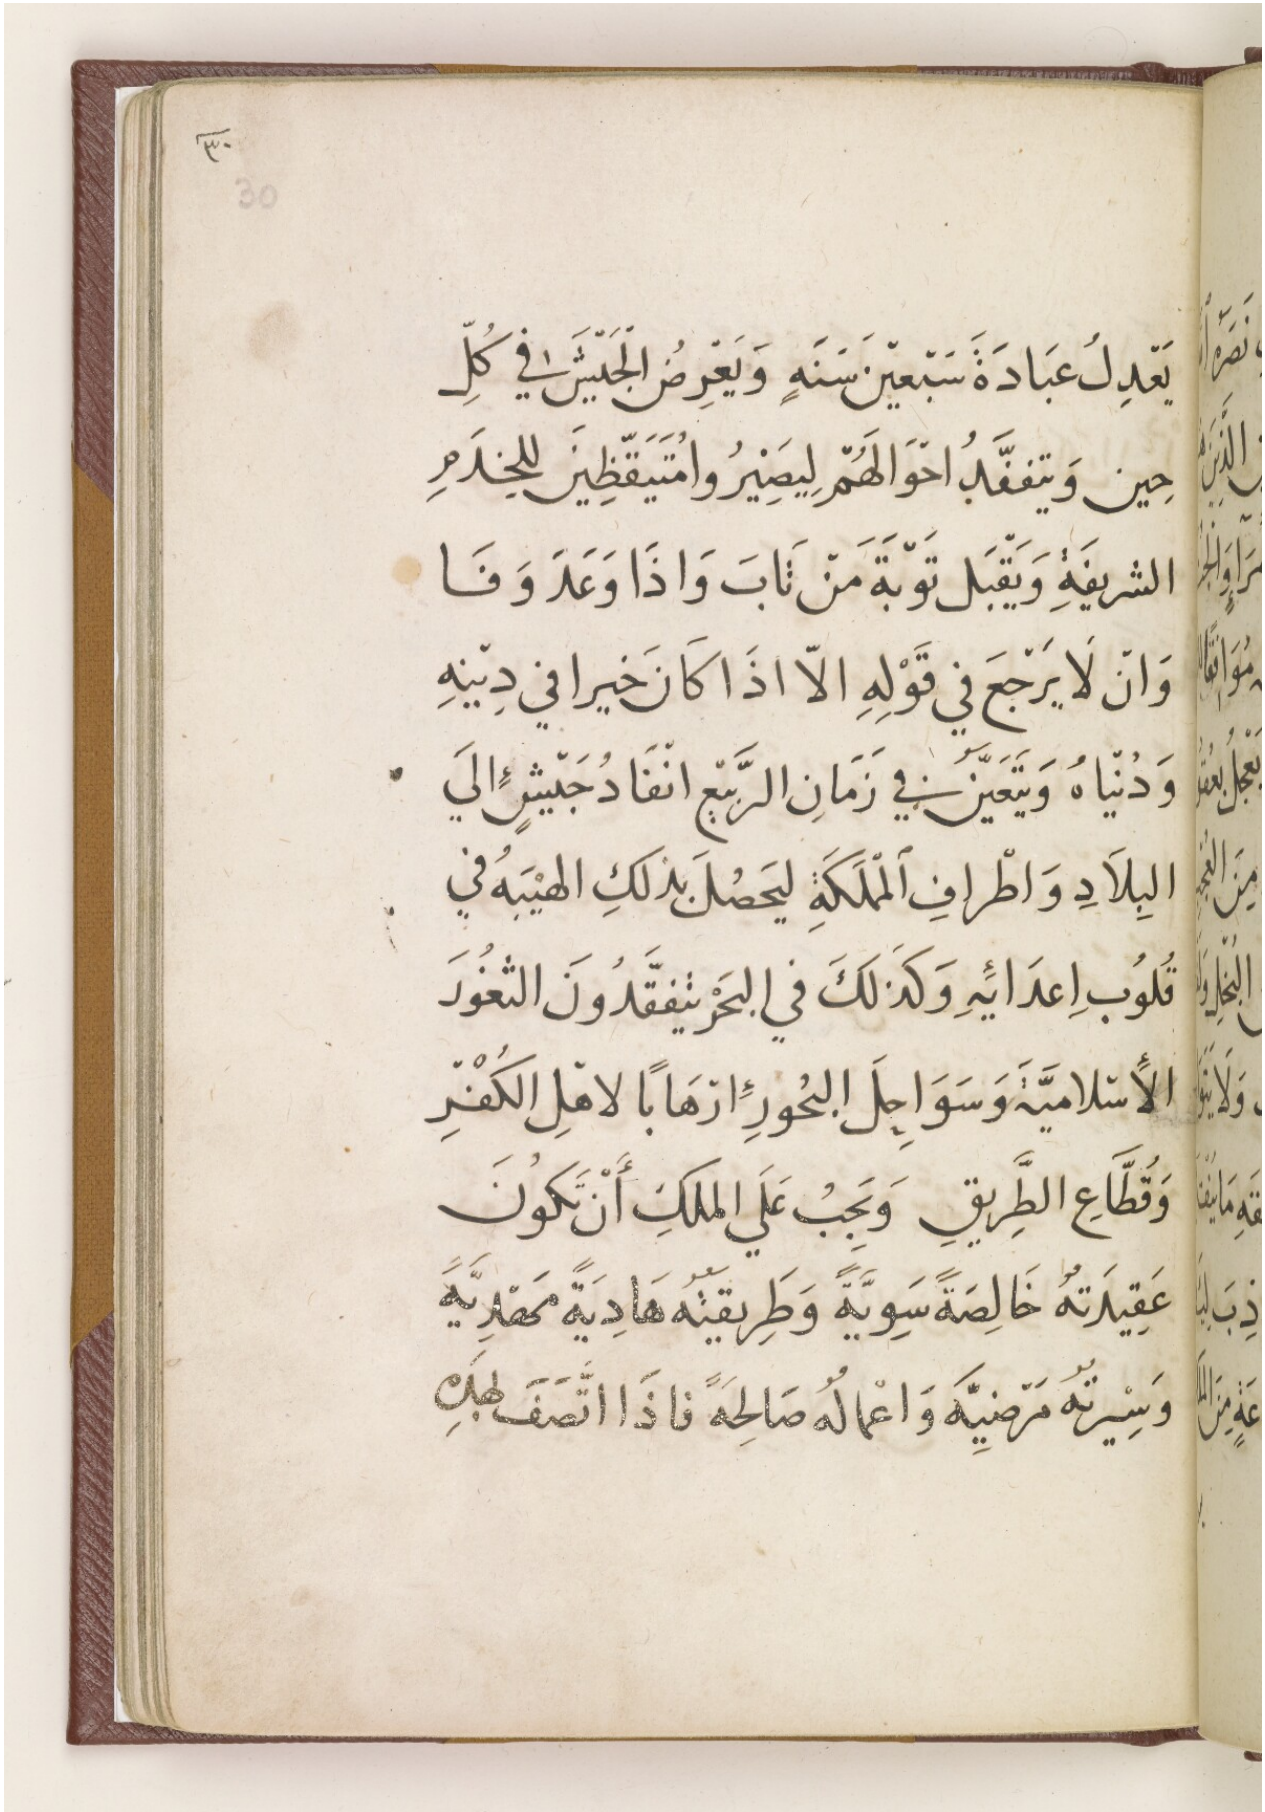 ٣٠
30
يَعْدِلُ عِبَادَةَ سَبْعِيْنَ سَنَةٍ وَيَعْرِضُ الْجَيْشَ في كُلِّ
حِين وَيتفقَّدُ احْوَالَهُمْ لِيصِيْرُوا مُتَيَقِّظِينَ للخِدَمِ
الشريفَةِ وَيَقْبَل تَوْبَةَ مَنْ تَابَ وَاذَا وَعَدَ وَفَا
وَانْ لَا يَرْجعَ في قَوْلِهِ الاّ اذَا كَانَ خَيرا في دِيْنِهِ
وَدُنْيَاهُ وَيَتَعَيَّنُ في زَمَانِ الرَّبيْعِ انْفَادُ جَيْشٍ الَي
البِلَادِ وَاطْرافِ الْمْلَكَةِ ليَحصُلَ بذلكِ الهيْبَهُ في
قُلُوبِ اِعدَائِهِ وَكَذَلكَ في البَحْر يتفقَّدُونَ الثغُورَ
الأسْلاميَّةَ وَسَوَاحِلَ البُحورِ ارْهَابًا لاهْلِ الكُفْرِ
وَقُطَّاعِ الطَّرِيقِ وَيَجِبُ عَلَي الملكِ أَنْ تَكُونَ
عَقِيدَتهُ خَالِصَةً سَوِيَّةً وَطَرِيقتُهُ هَادِيَةً مَهْدِيَّةً
وَسِيْرتُهُ مَرْضيَّةَ وَاعْمالُه صَالِحَةً فاذَا اتَّصَفَ بهَذِهِ